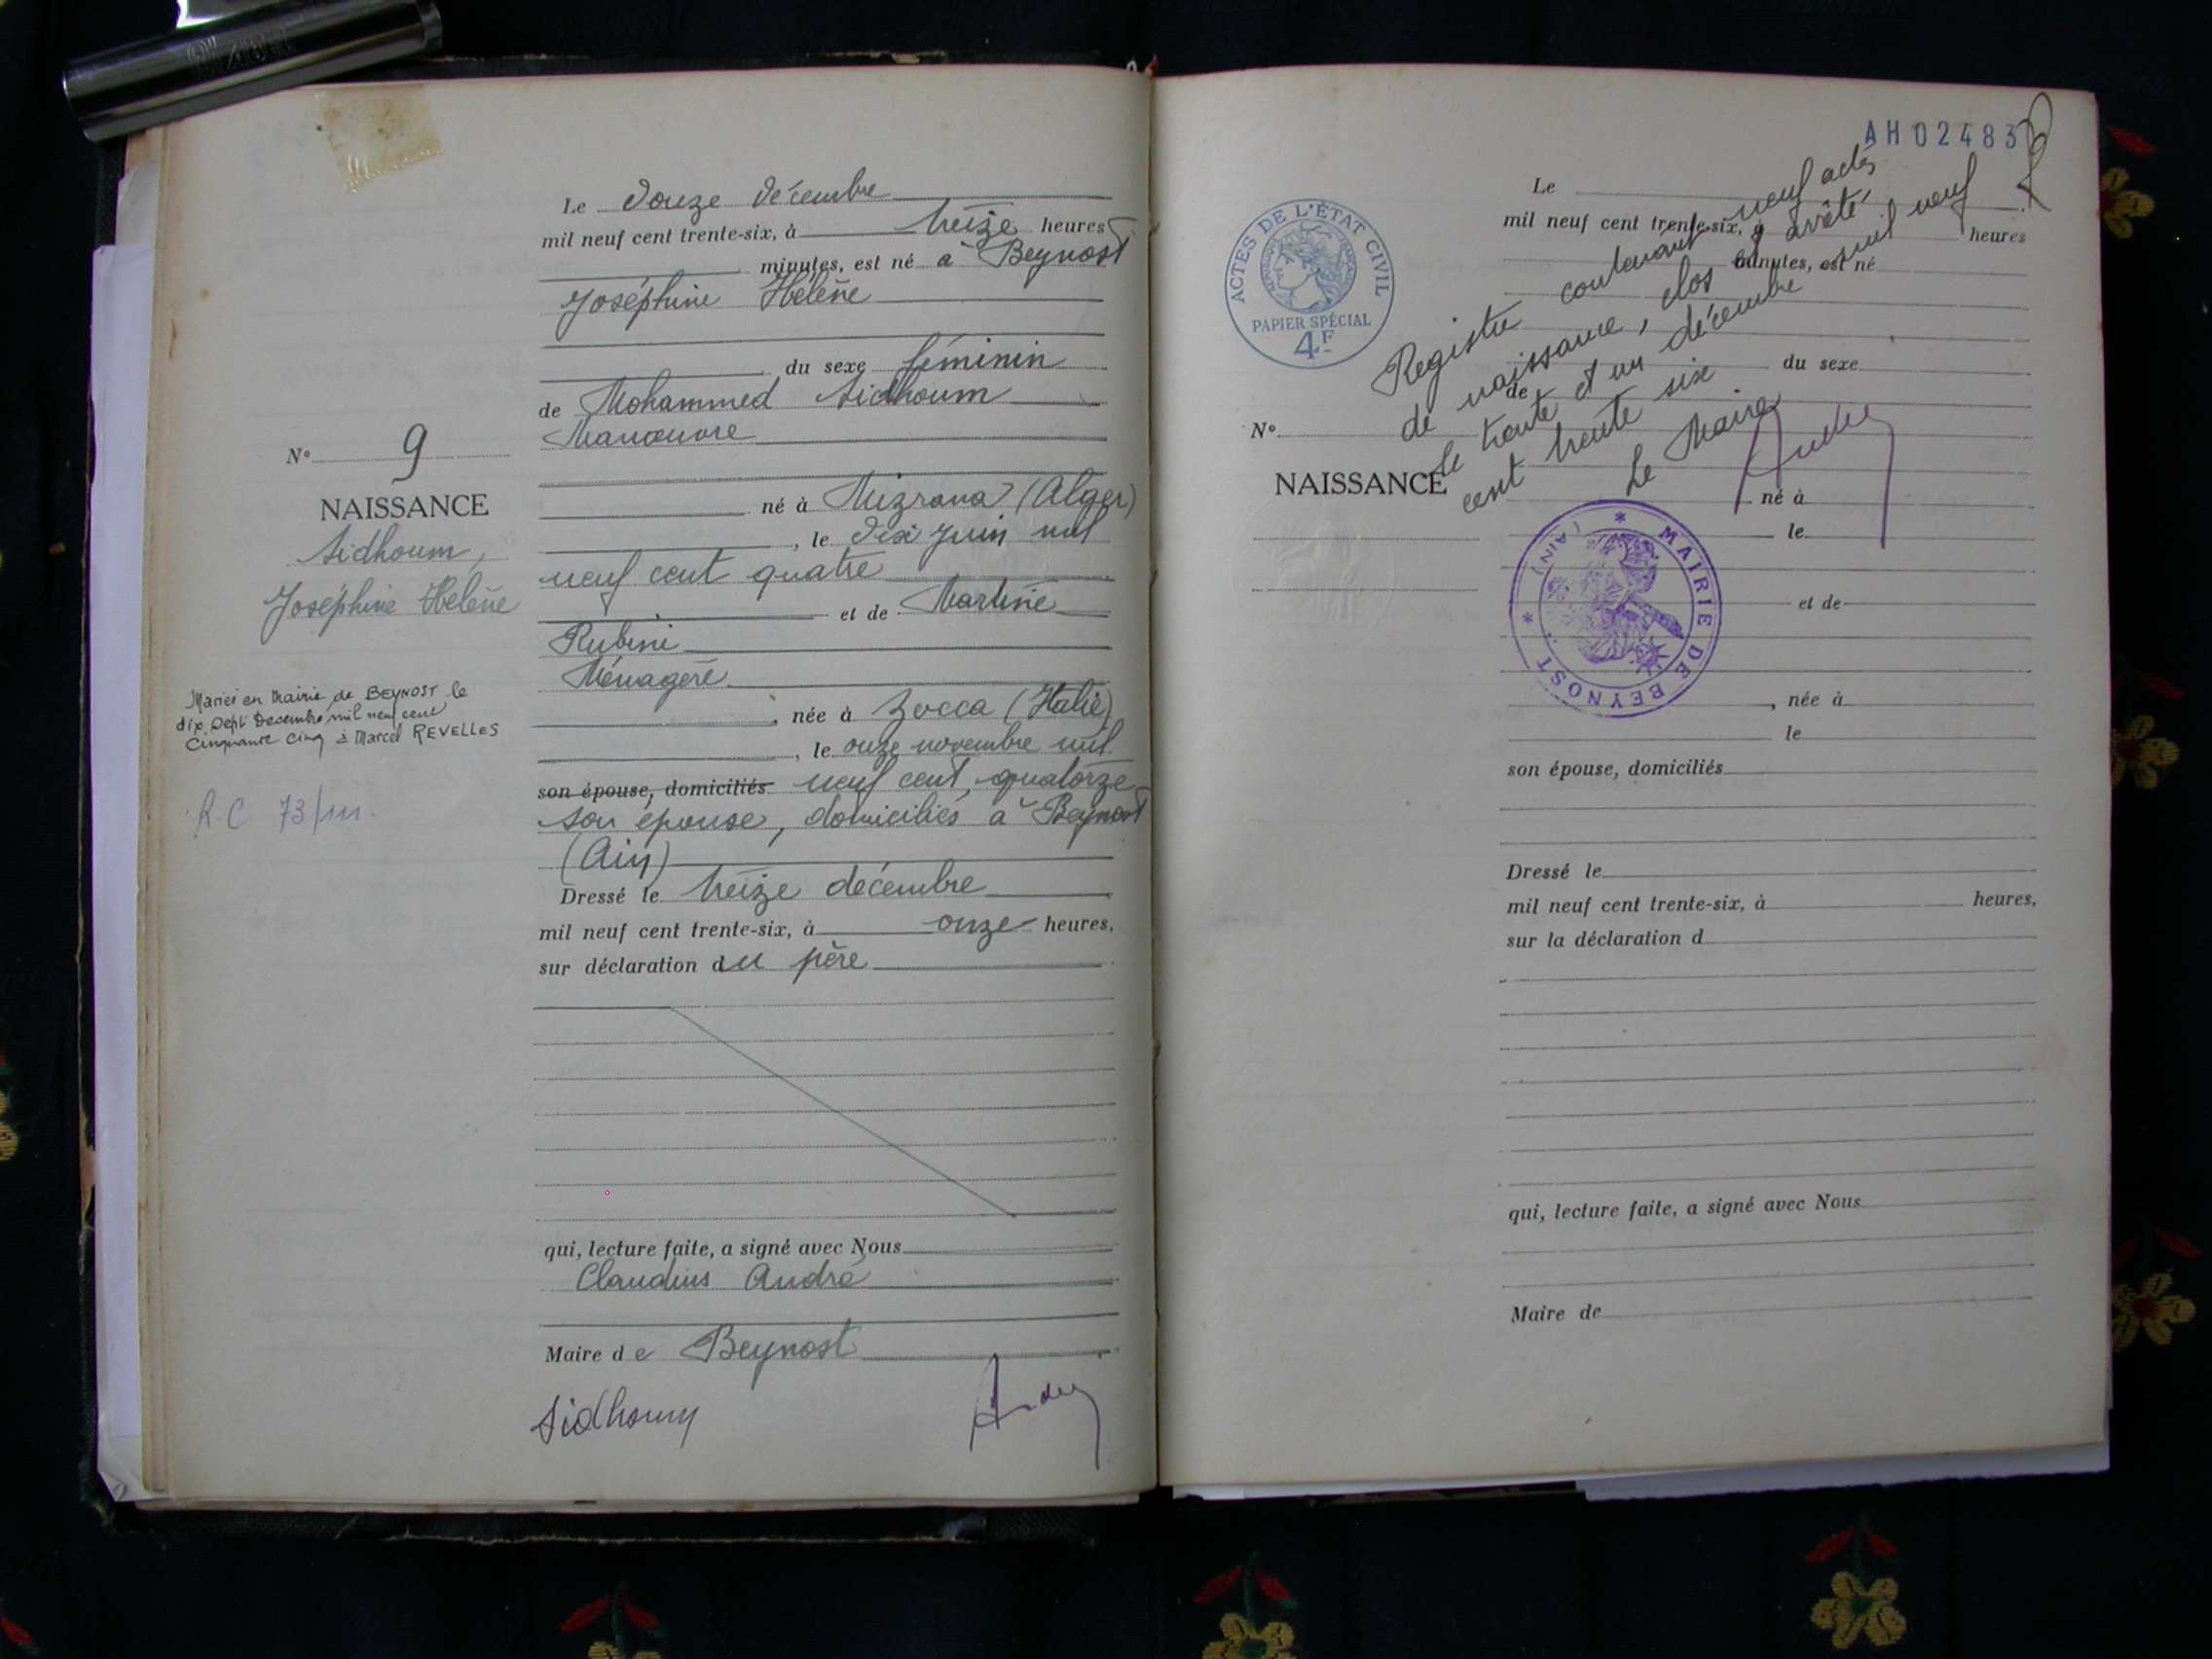 Le douze décembre
mil neuf cent trente-six, à treize heures
minutes, est né à Beynost
Joséphine Hélène
du sexe féminin
de Mohammed Sidhoum
Manœuvre
né à Mizrana (Alger)
, le dix juin mil
neuf cent quatre
et de Martine
Rubini
Ménagère
, née à Zocca (Italie)
, le onze novembre mil
son épouse, domiciliés neuf cent quatorze
son épouse, domiciliés à Beynost
(Ain)
Dressé le treize décembre
mil neuf cent trente-six, à onze heures,
sur déclaration du père
qui, lecture faite, a signé avec Nous
Claudius André
Maire de Beynost
Sidhoum
André
N° 9
NAISSANCE
Sidhoum,
Joséphine Hélène
Mariée en Mairie de BEYNOST le
dix Sept Decembre mil neuf cent
Cinquante cinq à Marcel REVELLES
R.C 73/
AH02483
ACTES DE L'ÉTAT CIVIL
PAPIER SPÉCIAL
4F
Registre contenant neuf actes
de naissance, clos et arrêté
le trente et un décembre mil neuf
cent trente six
Le Maire
André
MAIRIE DE BEYNOST
(AIN)
Le
mil neuf cent trente-six, à heures
minutes, est né
du sexe
de
N°
NAISSANCE
né à
le
et de
, née à
le
son épouse, domiciliés
Dressé le
mil neuf cent trente-six, à heures,
sur la déclaration d
qui, lecture faite, a signé avec Nous
Maire de